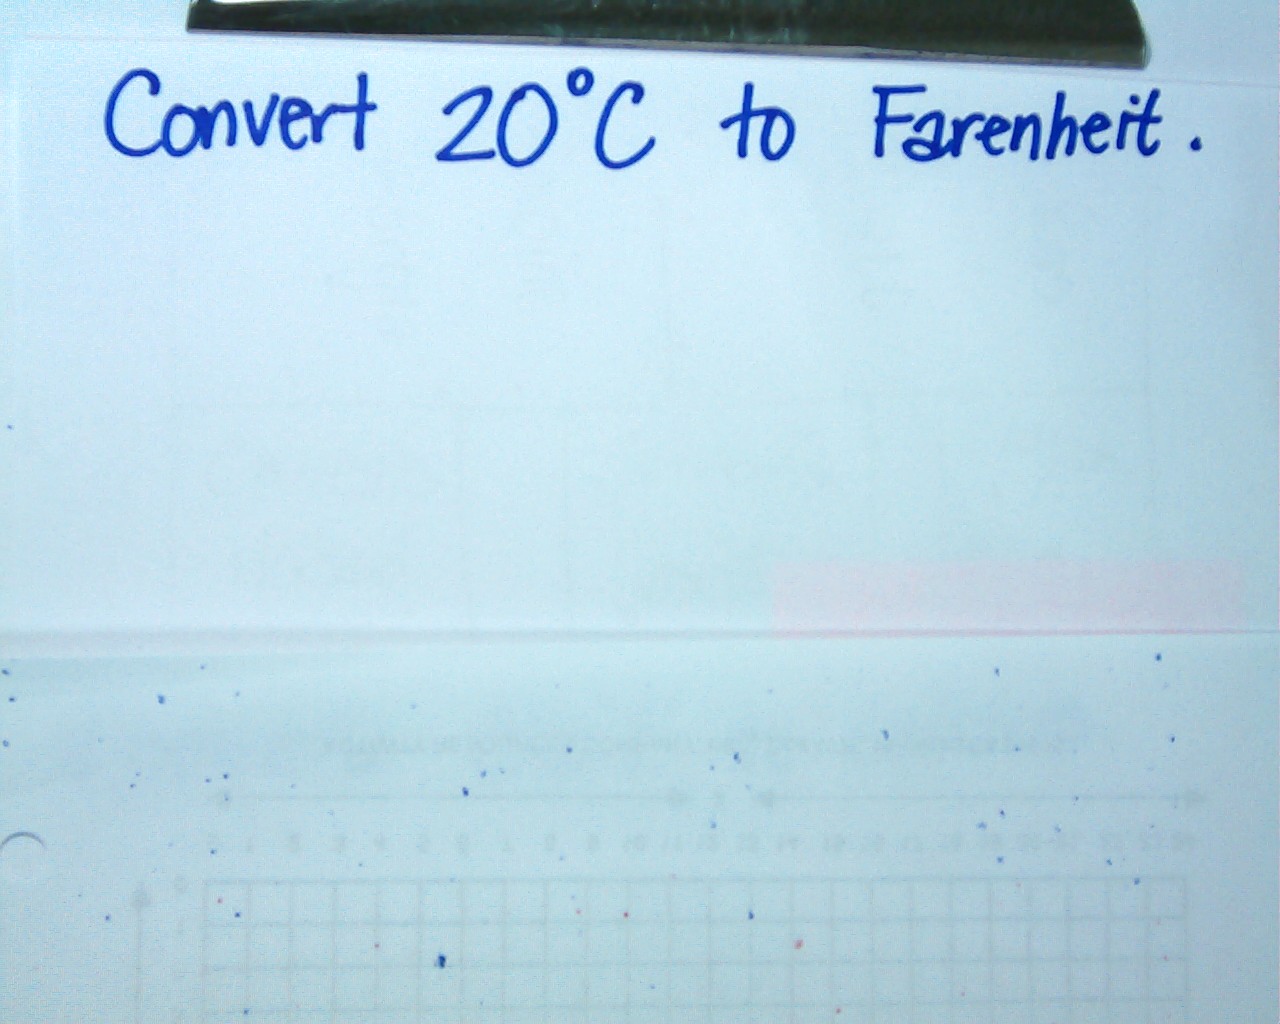 Convert 20°C to Farenheit.